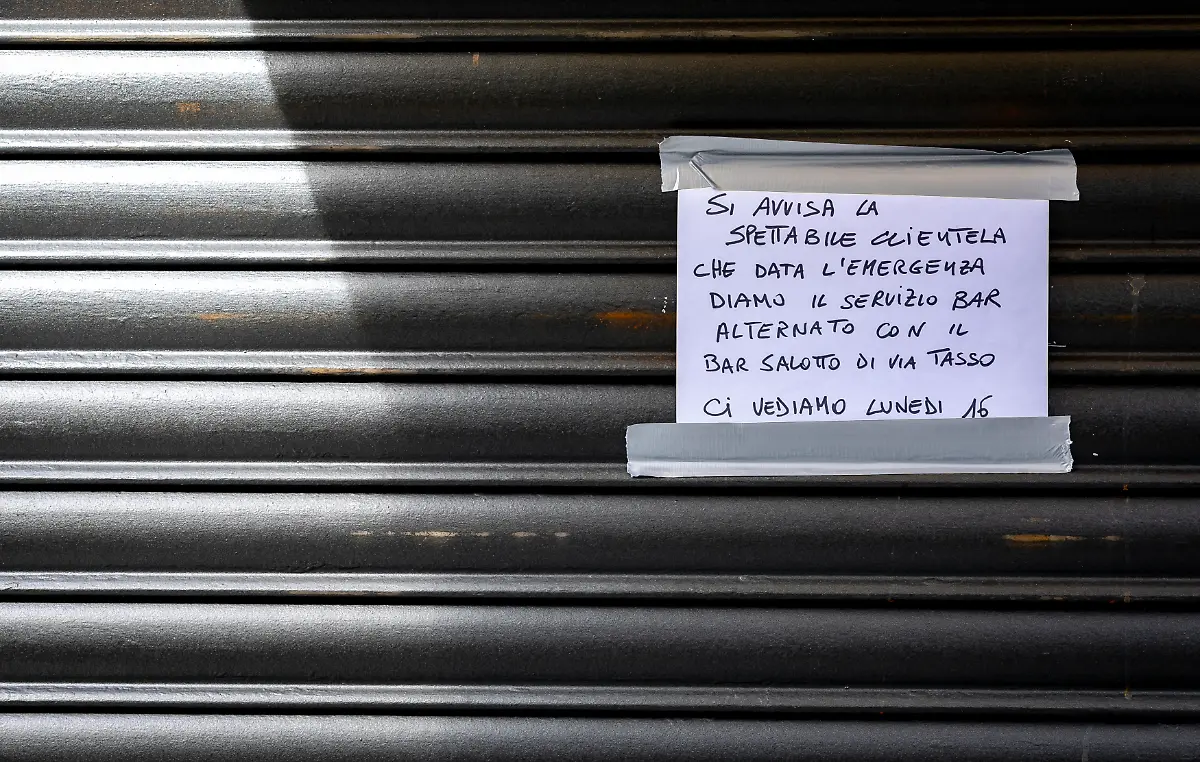 SI AVVISA LA
SPETTABILE CLIENTELA
CHE DATA L'EMERGENZA
DIAMO IL SERVIZIO BAR
ALTERNATO CON IL
BAR SALOTTO DI VIA TASSO
CI VEDIAMO LUNEDI 16